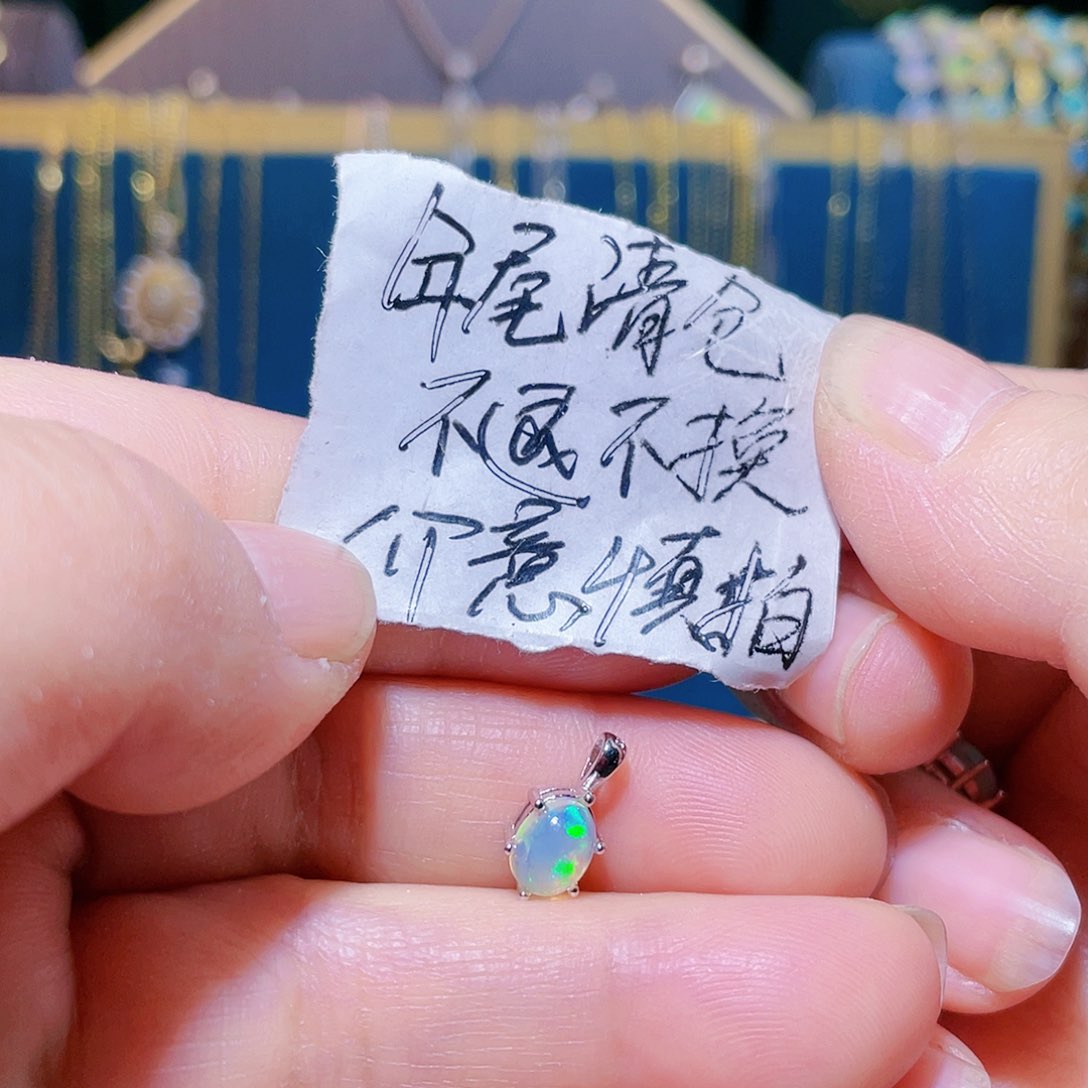 年尾清包
不退不换
介意慎拍